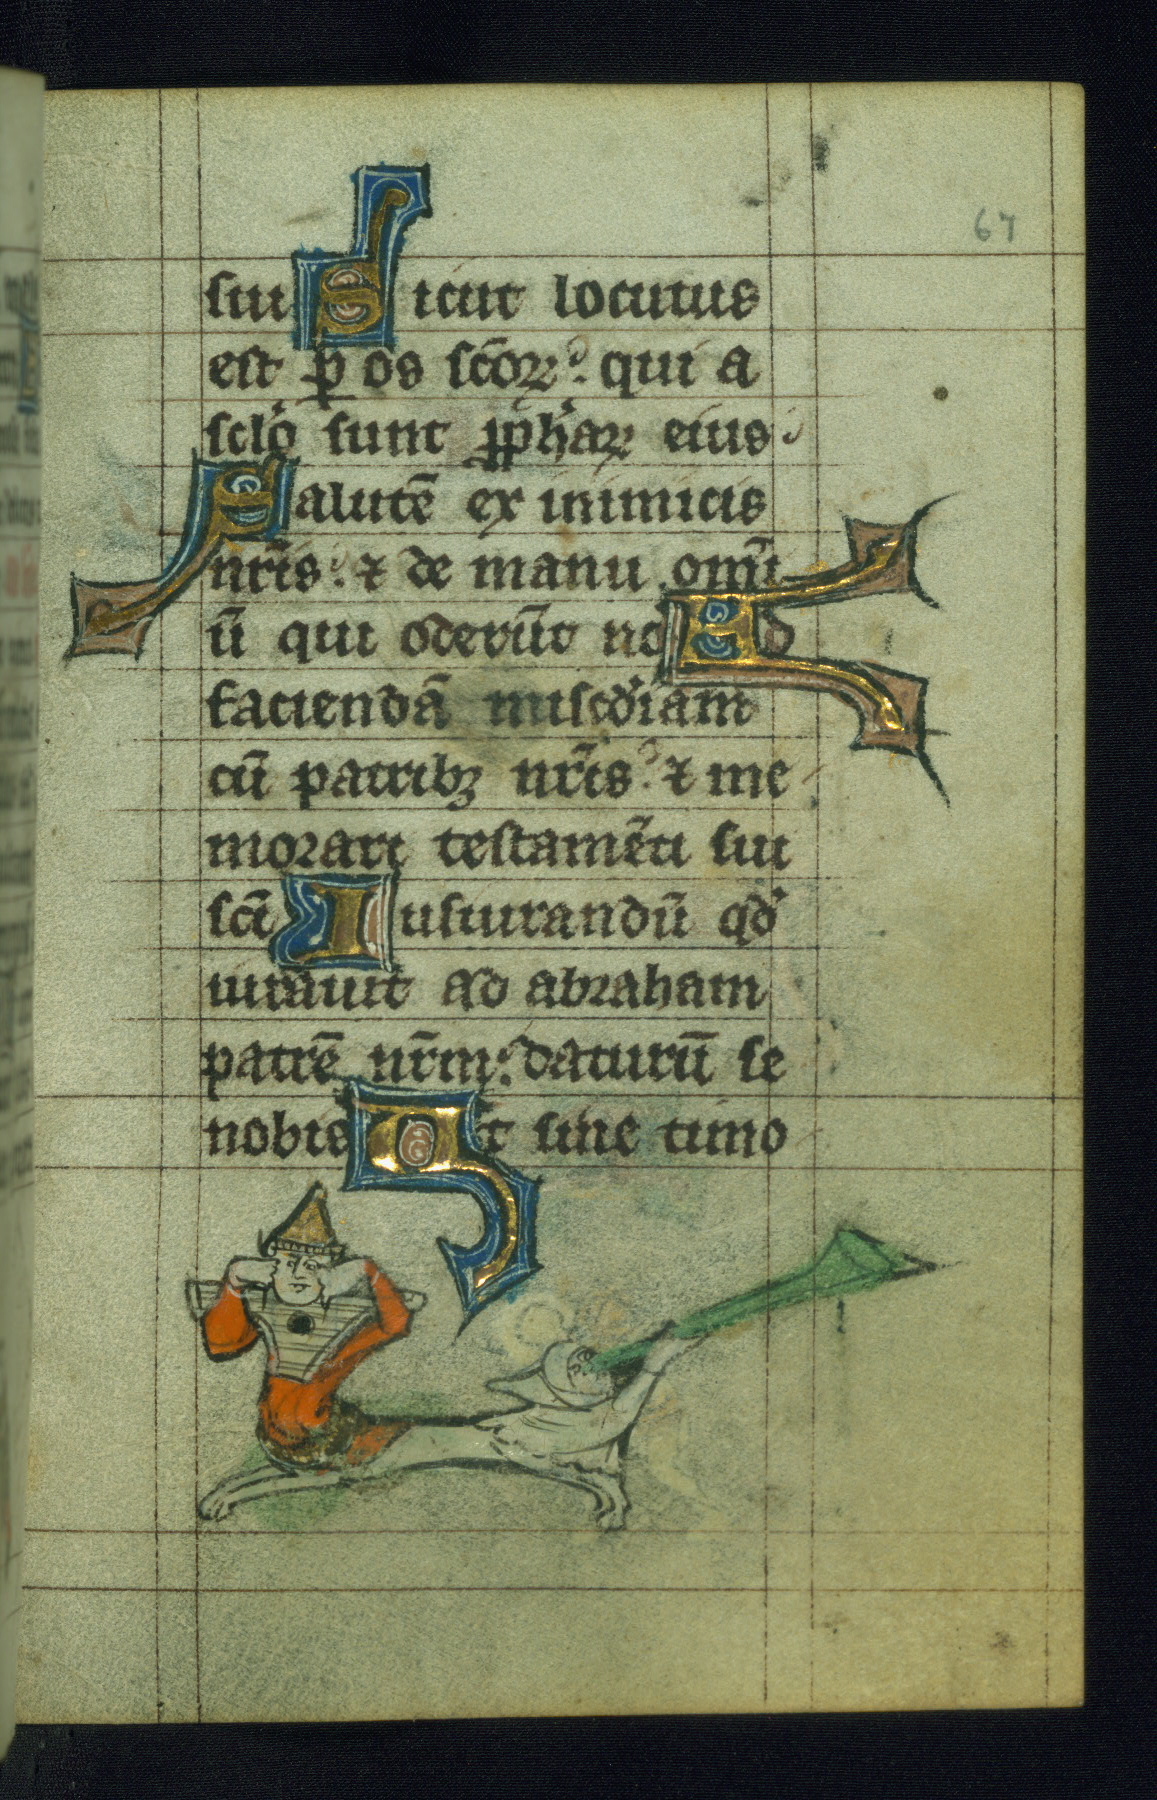 67
sui Sicut locutus
est p̲ os sc̄oꝝ. qui a
sclo̓ sunt ꝓph̓aꝝ eius
Salutē ex inimicis
nr̄is. ⁊ de manu om̄i
ū qui oderūt nos Ad
faciendā misc̓diam
cū patribꝫ nr̄is. ⁊ me
morari testamēti sui
sc̄i Iusiurandū qd̓
iurauit ad abraham
patrē nr̄m. daturū se
nobis Ut sine timo